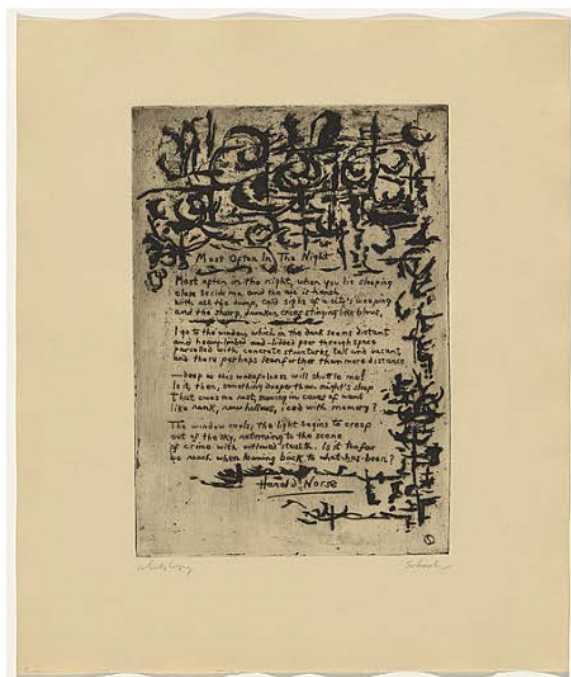 Most Often In The Night
Most often in the night, when you lie sleeping
close beside me and the air is harsh
with all the damp, cold sighs of a city's weeping
and the sharp, drunken cries stinging like blows,
I go to the window which in the dark seems distant
and heavy-limbed and -lidded peer through space
parcelled with concrete structures, tall and vacant
and there perhaps lean further than mere distance
—deep as this wakefulness will shuttle me!
Is it, then, something deeper than night's sleep
that owns me most, moving in caves of want
like rank, new hollows, iced with memory?
The window cools; the light begins to creep
out of the sky, returning to the scene
of crime with outlawed stealth. Is it the far
we reach when leaning back to what-has-been?
Harold Norse